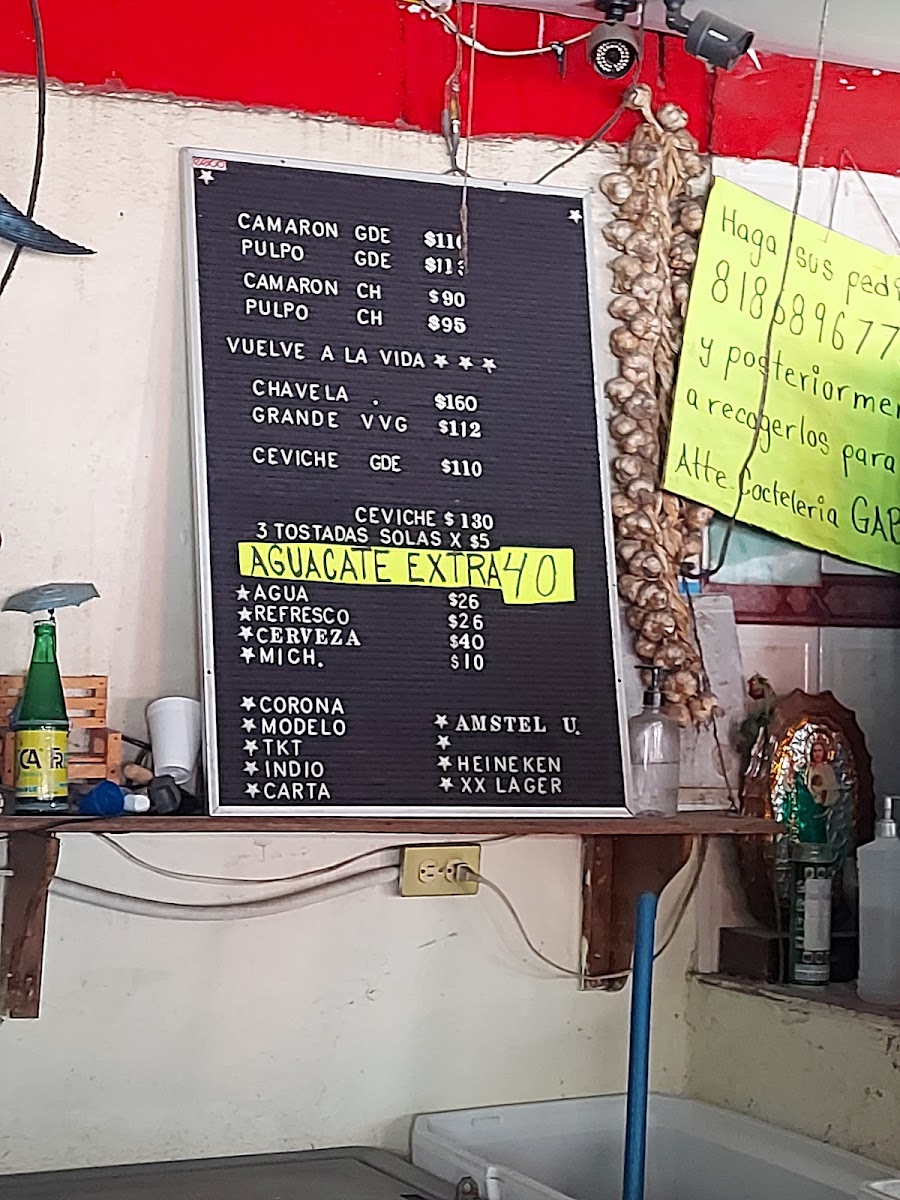 CAMARON GDE
PULPO GDE
CAMARON CH $90
PULPO CH $95
VUELVE A LA VIDA
CHAVELA . $160
GRANDE VVG $112
CEVICHE GDE $110
CEVICHE $130
3 TOSTADAS SOLAS X $5
AGUACATE EXTRA 40
AGUA $26
REFRESCO $26
CERVEZA $40
MICH. $10
CORONA
MODELO
TKT
INDIO
CARTA
AMSTEL U.
HEINEKEN
XX LAGER
Haga sus pedi
y posteriormen
a recogerlos para
Atte. Cocteleria GAB